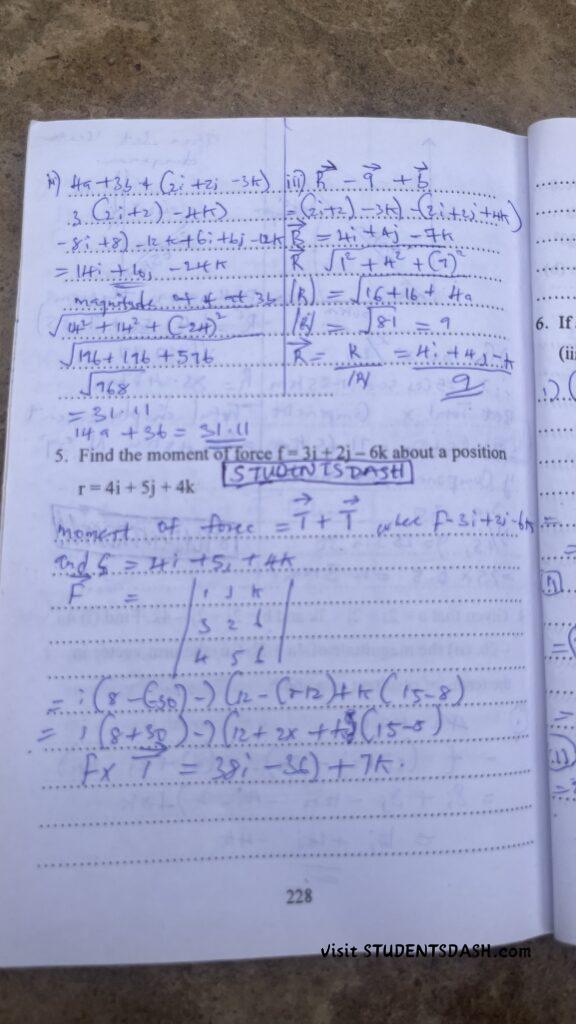 ii) 4a + 3b + (2i + 2j - 3k)
3 (2i + 2) - 4k)
- 8i + 8) - 12k + 6i + 6j - 12k
= 14i + 16j - 24k
magnitude of
√14² + 14² + (-24)²
√196 + 196 + 576
√968
= 31.11
14a + 36 = 31.11
iii) R - a + b
= (2i + 2) - 3k) - (2i + 2j + 4k)
R = 4i + 4j - 7k
R √1² + 4² + (7)²
|R| = √16 + 16 + 49
|R| = √81 = 9
R = R = 4i + 4j - k
|R| 9
5. Find the moment of force f = 3j + 2j – 6k about a position
r = 4i + 5j + 4k
STUDENTSDASH
moment of force = T + T where f = 3i + 2j - 6k
and = 4i + 5j + 4k
F = | i j k |
3 2
4 5
= i (8 - (-30) - ) (12 - (-12) + k (15 - 8)
= i (8 + 30) - ) (12 + 2x + (15 - 8)
f x T = 38i - 36) + 7k.
228
6. If
(ii
i)
visit STUDENTSDASH.com